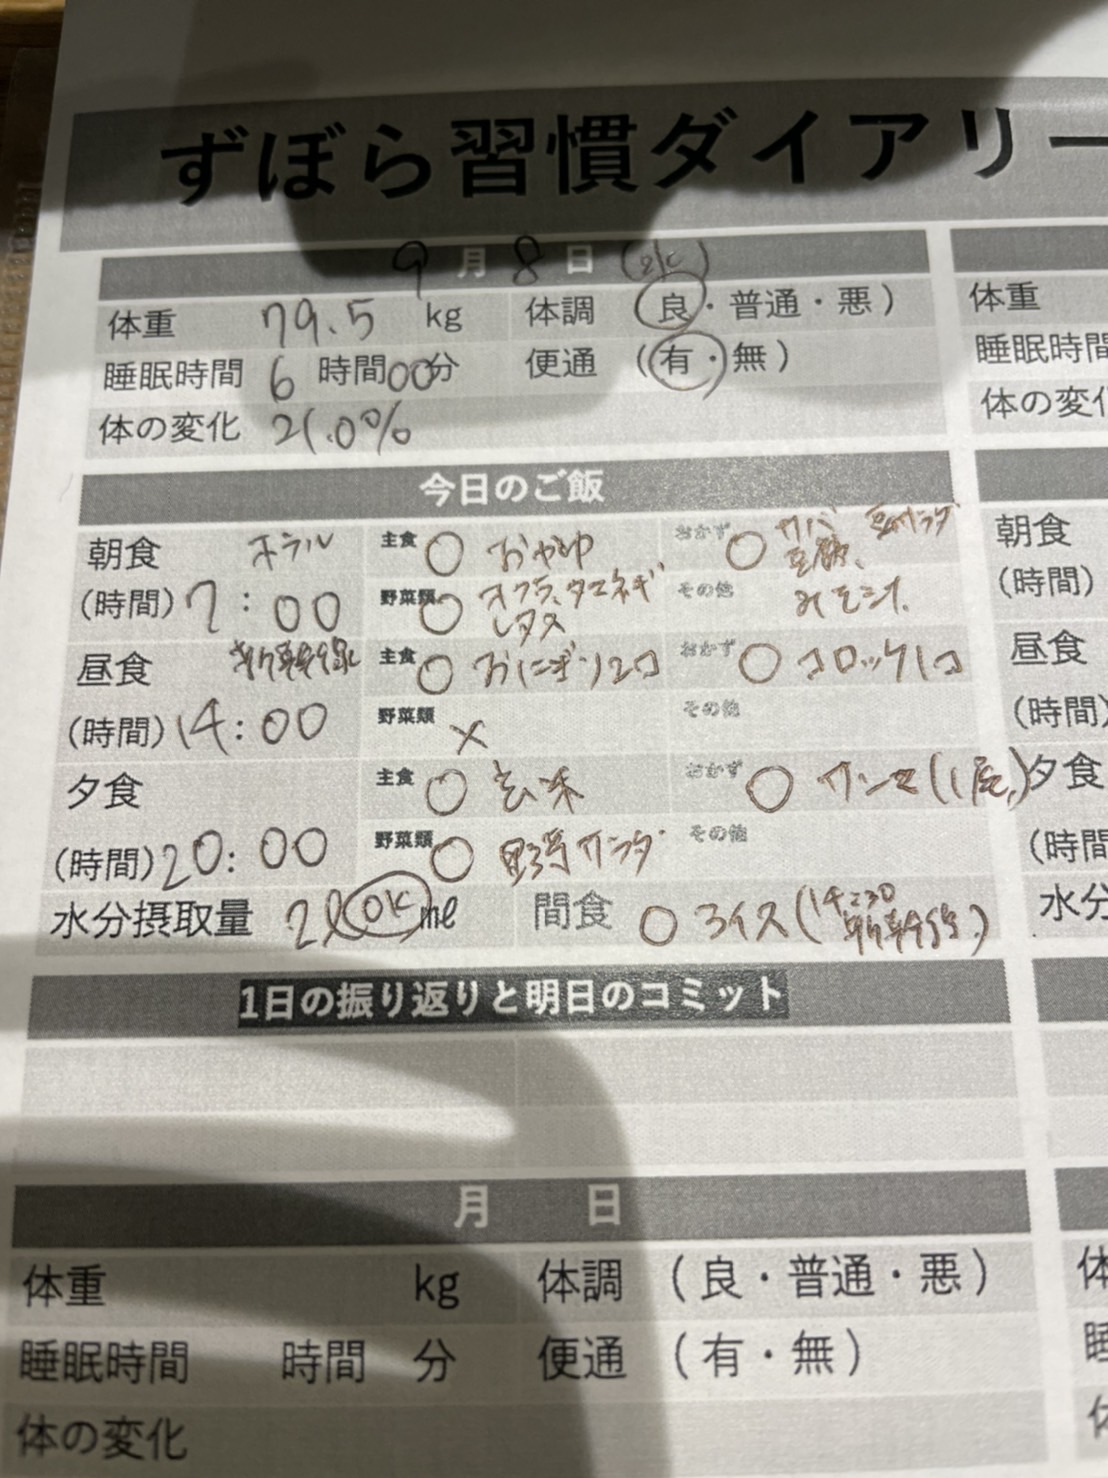 ずぼら習慣ダイアリー
9月8日(水)
体重 79.5 kg 体調 (良・普通・悪)
睡眠時間 6時間00分 便通 (有・無)
体の変化 21.0%
今日のご飯
朝食 ホテル 主食 ○ おかゆ おかず ○ サバ 豆サラダ
豆腐、
(時間) 7:00 野菜類 ○ オクラ、タマネギ その他 みそ汁
レタス
昼食 新幹線 主食 ○ おにぎり2コ おかず ○ コロッケ1コ
(時間) 14:00 野菜類 × その他
夕食 主食 ○ 玄米 おかず ○ サンマ(1尾)
(時間) 20:00 野菜類 ○ 野菜サラダ その他
水分摂取量 2l OK ml 間食 ○ アイス(14:30
新幹線)
1日の振り返りと明日のコミット
月 日
体重 kg 体調 (良・普通・悪)
睡眠時間 時間 分 便通 (有・無)
体の変化
体重
睡眠時間
体の変化
朝食
(時間)
昼食
(時間)
夕食
(時間)
水分